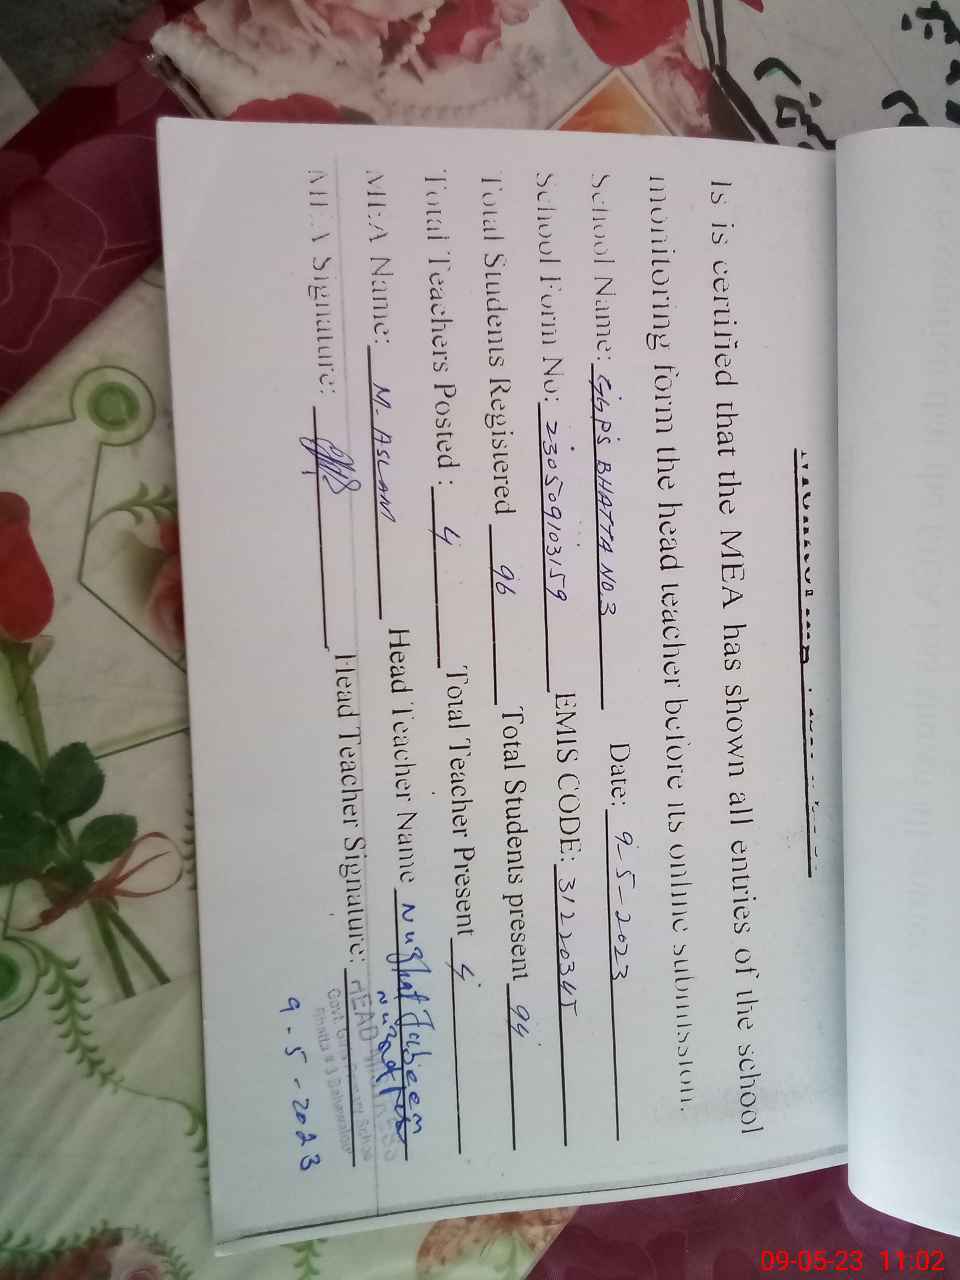 Is is certified that the MEA has shown all entries of the school
monitoring form the head teacher before its online submission.
School Name: GGPS BHATTA NO.3 Date: 9-5-2023
School Form No: 230509103159 EMIS CODE: 31220345
Total Students Registered 96 Total Students present 94
Total Teachers Posted : 4 Total Teacher Present 4
MEA Name: M. ASLAM Head Teacher Name Nughat Jabeen
MEA Signature: Head Teacher Signature:
HEAD MISTRESS
Govt. Girls Primary School
9-5-2023
09-05-23 11:02